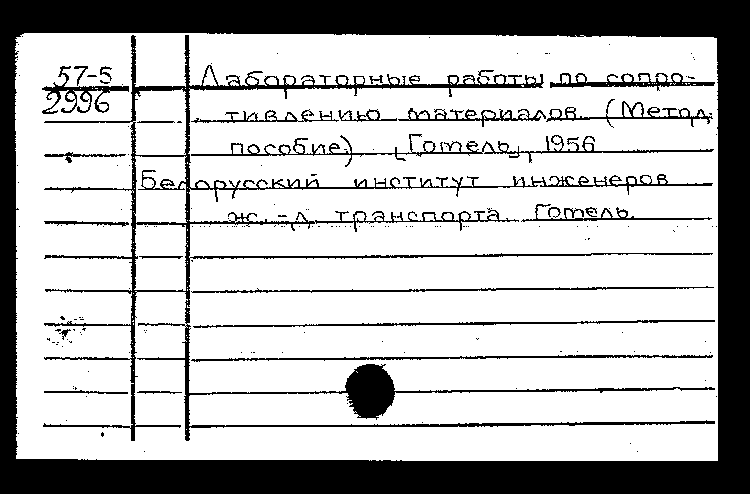 57-5 Лабораторные работы по сопро-
2996 тивлению материалов. (Метод.
пособие) [Гомель], 1956
Белорусский институт инженеров
ж.-д. транспорта. Гомель.